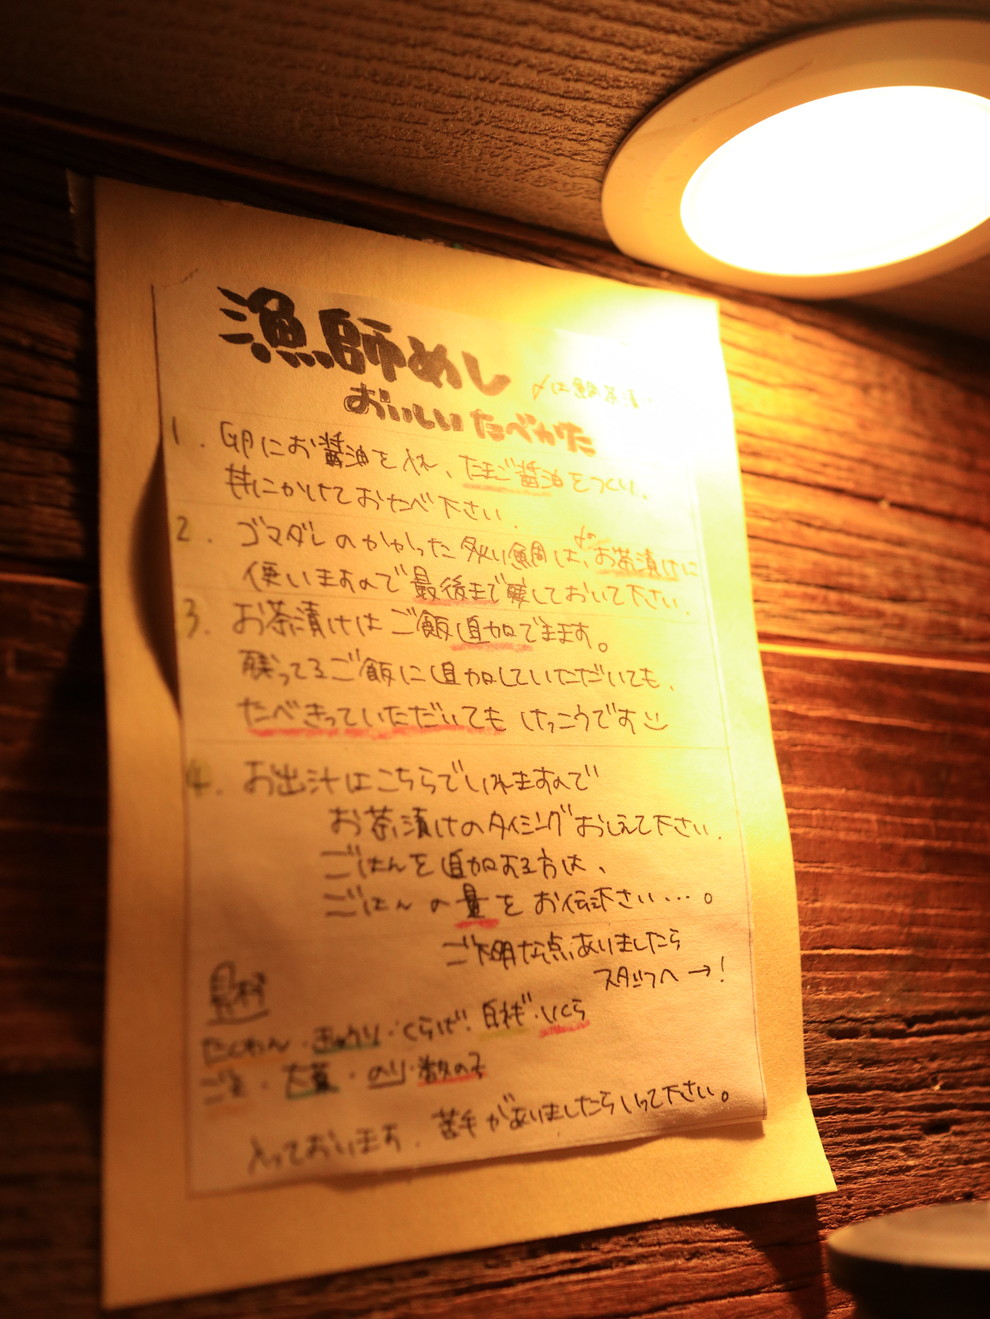 漁師めし
〆は鯛茶漬
おいしいたべかた
1. 卵にお醤油を入れ、たまご醤油をつくり、
丼にかけておたべ下さい。
2. ゴマダレのかかった 鯛は、〆のお茶漬けに
使いますので最後まで残しておいて下さい。
3. お茶漬けはご飯追加できます。
残ってるご飯に追加していただいても、
たべきっていただいても けっこうです
4. お出汁はこちらでいれますので
お茶漬けのタイミングおしえて下さい。
ごはんを追加する方は、
ごはんの量をお伝え下さい…。
ご不明な点ありましたら
スタッフへ→!
具材
たくわん・きゅうり・くらげ・白ネギ・いくら
ごま・大葉・のり・数の子
入っております。苦手がありましたらいって下さい。